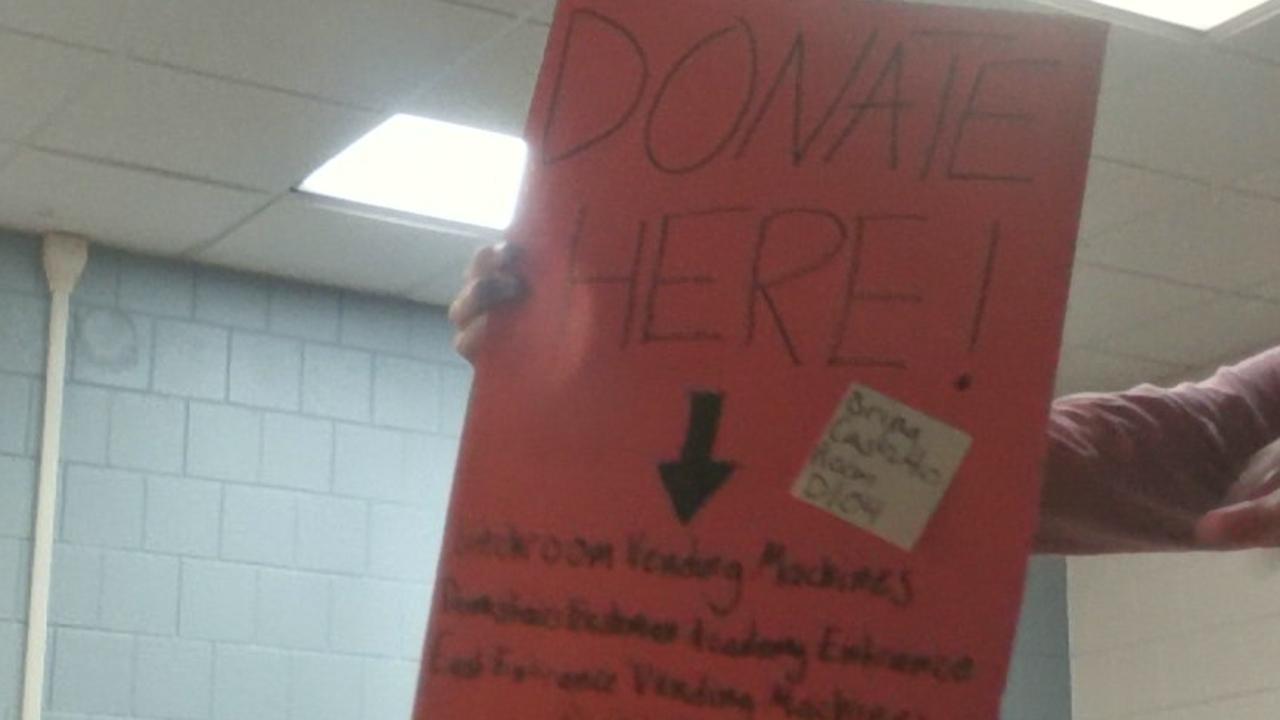 DONATE
HERE!
Room
D104
Lunchroom Vending Machines
Academy Entrance
East Entrance Vending Machines